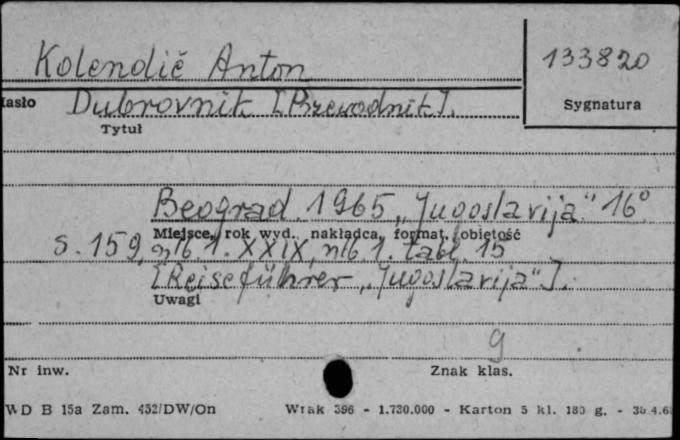 Kolendič Anton
133820
Hasło Dubrovnik [Przewodnik].
Sygnatura
Tytuł
Beograd 1965 „Jugoslavija" 16°
Miejsce, rok wyd., nakładca, format, objętość
s. 159, nlb. 1. XXIX, nlb 1. tabl. 15
[Reiseführer „Jugoslavija"].
Uwagi
9
Nr inw.
Znak klas.
WD B 15a Zam. 452/DW/On Wrak 396 - 1.730.000 - Karton 5 kl. 180 g. -